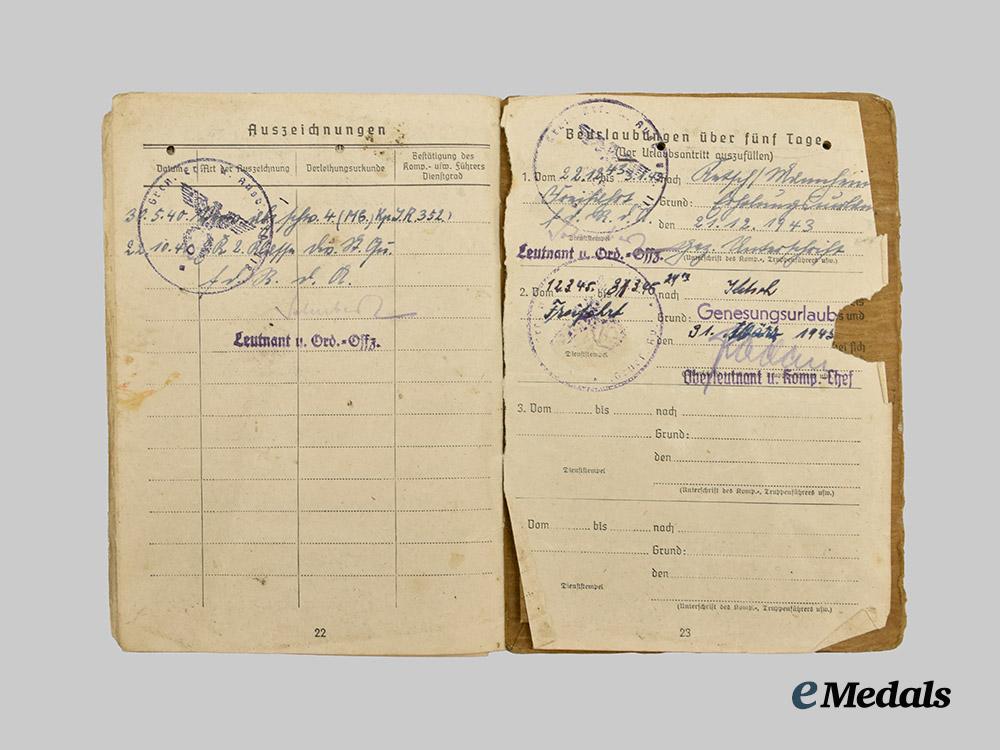 Auszeichnungen
Datum
Art der Auszeichnung
Verleihungsurkunde
Bestätigung des
Komp.- usw. Führers
Dienstgrad
30.5.40. schw. 4 (MG.) Kp. I.R. 352)
2. Klasse
f. d. R. d. A.
Leutnant u. Ord.-Offz.
22
Beurlaubungen über fünf Tage
(Vor Urlaubsantritt auszufüllen)
1. Vom 22.12.43 bis nach Ketsch/Mannheim
Grund: Erholungsurlaub
f. d. R. d. A. den 21.12.1943
Dienststempel
gez. Unterschrift
Leutnant u. Ord.-Offz.
(Unterschrift des Komp.-, Truppenführers usw.)
2. Vom 12.3.45 bis nach Ketsch
Freifahrt Grund: Genesungsurlaub
und
31. März 1945
sich
Dienststempel
Oberleutnant u. Komp.-Chef
3. Vom bis nach
Grund:
den
Dienststempel
(Unterschrift des Komp.-, Truppenführers usw.)
Vom bis nach
Grund:
den
Dienststempel
(Unterschrift des Komp.-, Truppenführers usw.)
23
eMedals